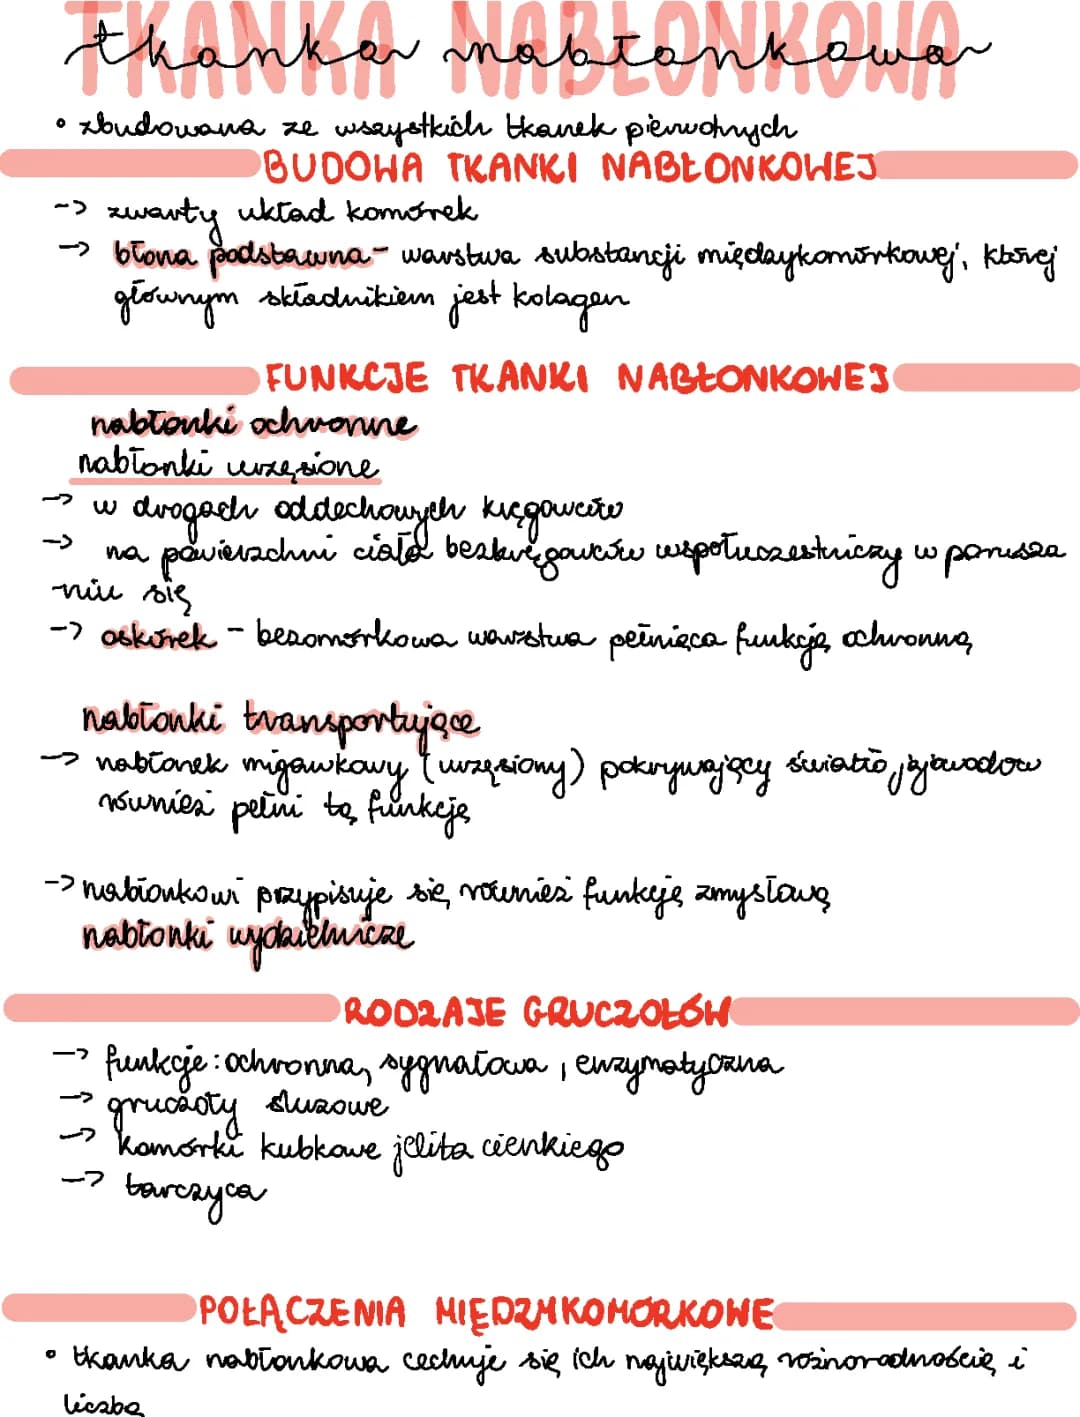 TKANKA NABŁONKOWA
tkanka nabłonkowa
• zbudowana ze wszystkich tkanek pierwotnych
BUDOWA TKANKI NABŁONKOWEJ
-> zwarty układ komórek
-> błona podstawna - warstwa substancji międzykomórkowej, której
głównym składnikiem jest kolagen
FUNKCJE TKANKI NABŁONKOWEJ
nabłonki ochronne
nabłonki urzęsione
-> w drogach oddechowych kręgowców
-> na powierzchni ciała bezkręgowców współuczestniczy w porusza
-niu się
-> oskórek - bezomórkowa warstwa pełniąca funkcję ochronną
nabłonki transportujące
-> nabłonek migawkowy (urzęsiony) pokrywający światło jajowodów
również pełni tą funkcję
-> nabłonkowi przypisuje się również funkcję zmysłową
nabłonki wydzielnicze
RODZAJE GRUCZOŁÓW
-> funkcje: ochronna, sygnałowa, enzymatyczna
-> gruczoły śluzowe
-> komórki kubkowe jelita cienkiego
-> tarczyca
POŁĄCZENIA MIĘDZYKOMÓRKOWE
• tkanka nabłonkowa cechuje się ich największą różnorodnością i
liczbą